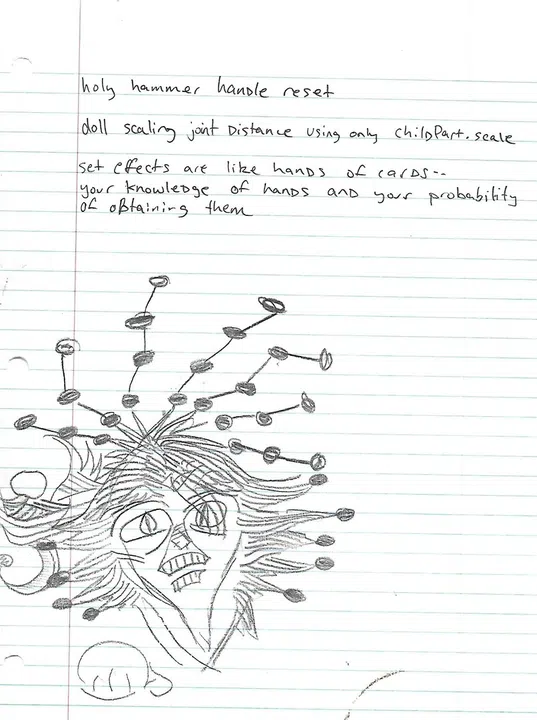 holy hammer handle reset
doll scaling joint Distance using only childPart.scale
set effects are like hands of carDs--
your knowledge of hands anD your probability
of obtaining them